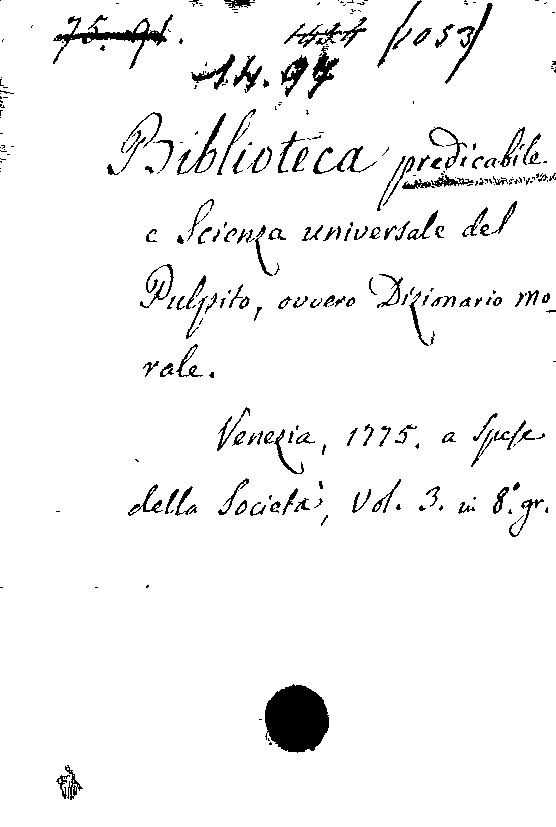 75. 91. (1053)
14. 97
Biblioteca predicabile
e Scienza universale del
Pulpito, ovvero Dizionario mo_
rale.
Venezia, 1775. a Spese
della Società, Vol. 3. in 8.° gr.